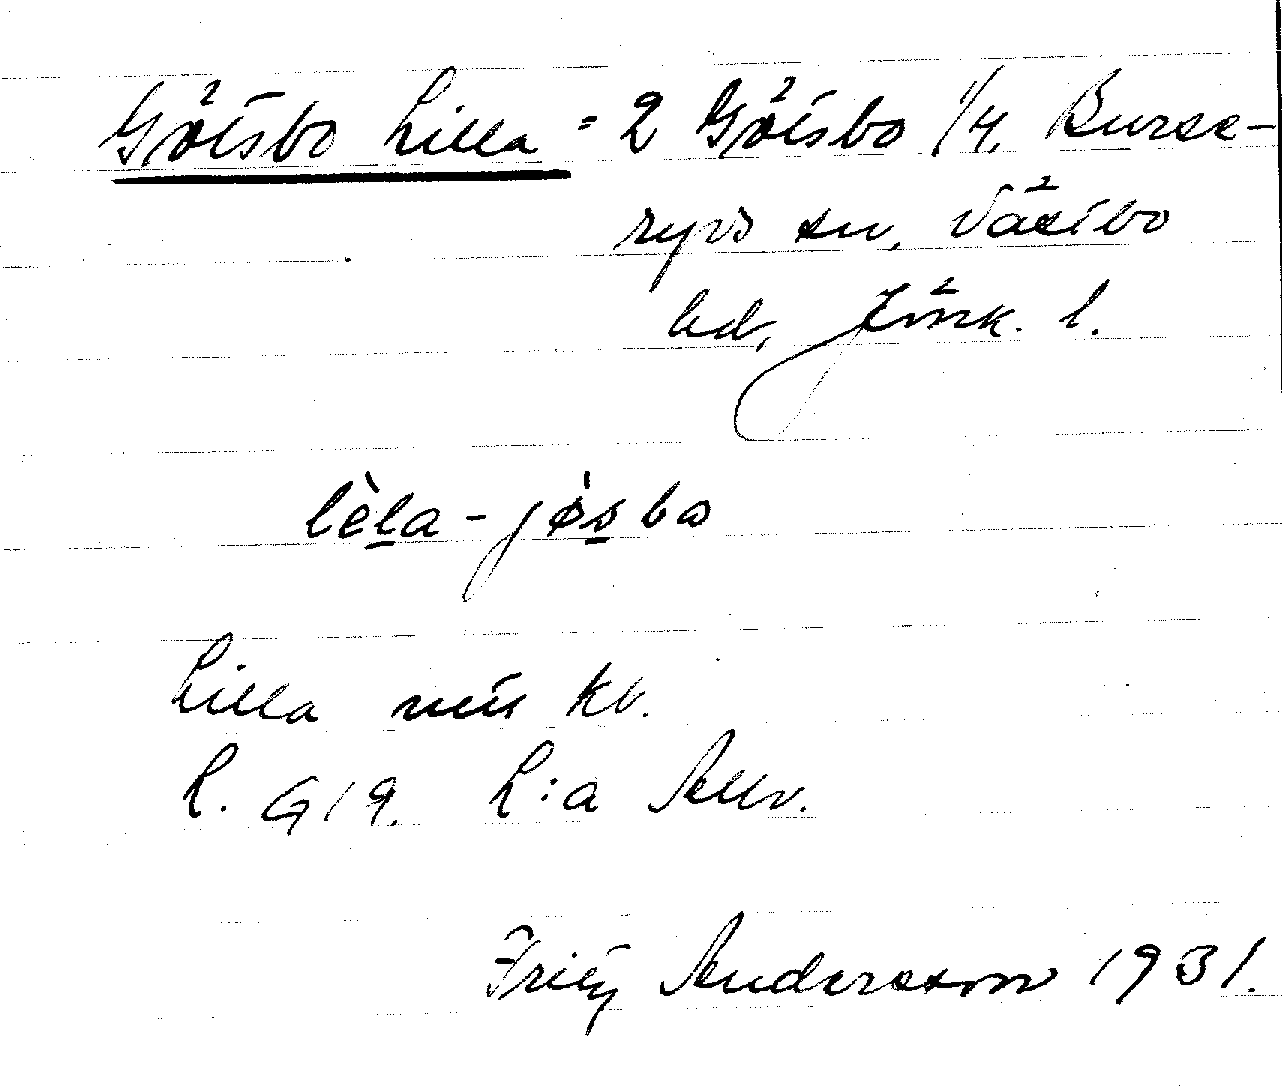 Götsbo Lilla = 2 Götsbo 1/4, Burse-
ryds sn, Västbo
hd, Jönk. l.
lèla-jòsbo
Lilla mtl kb.
L. G19. L:a Allv.
Fritz Andersson 1931.